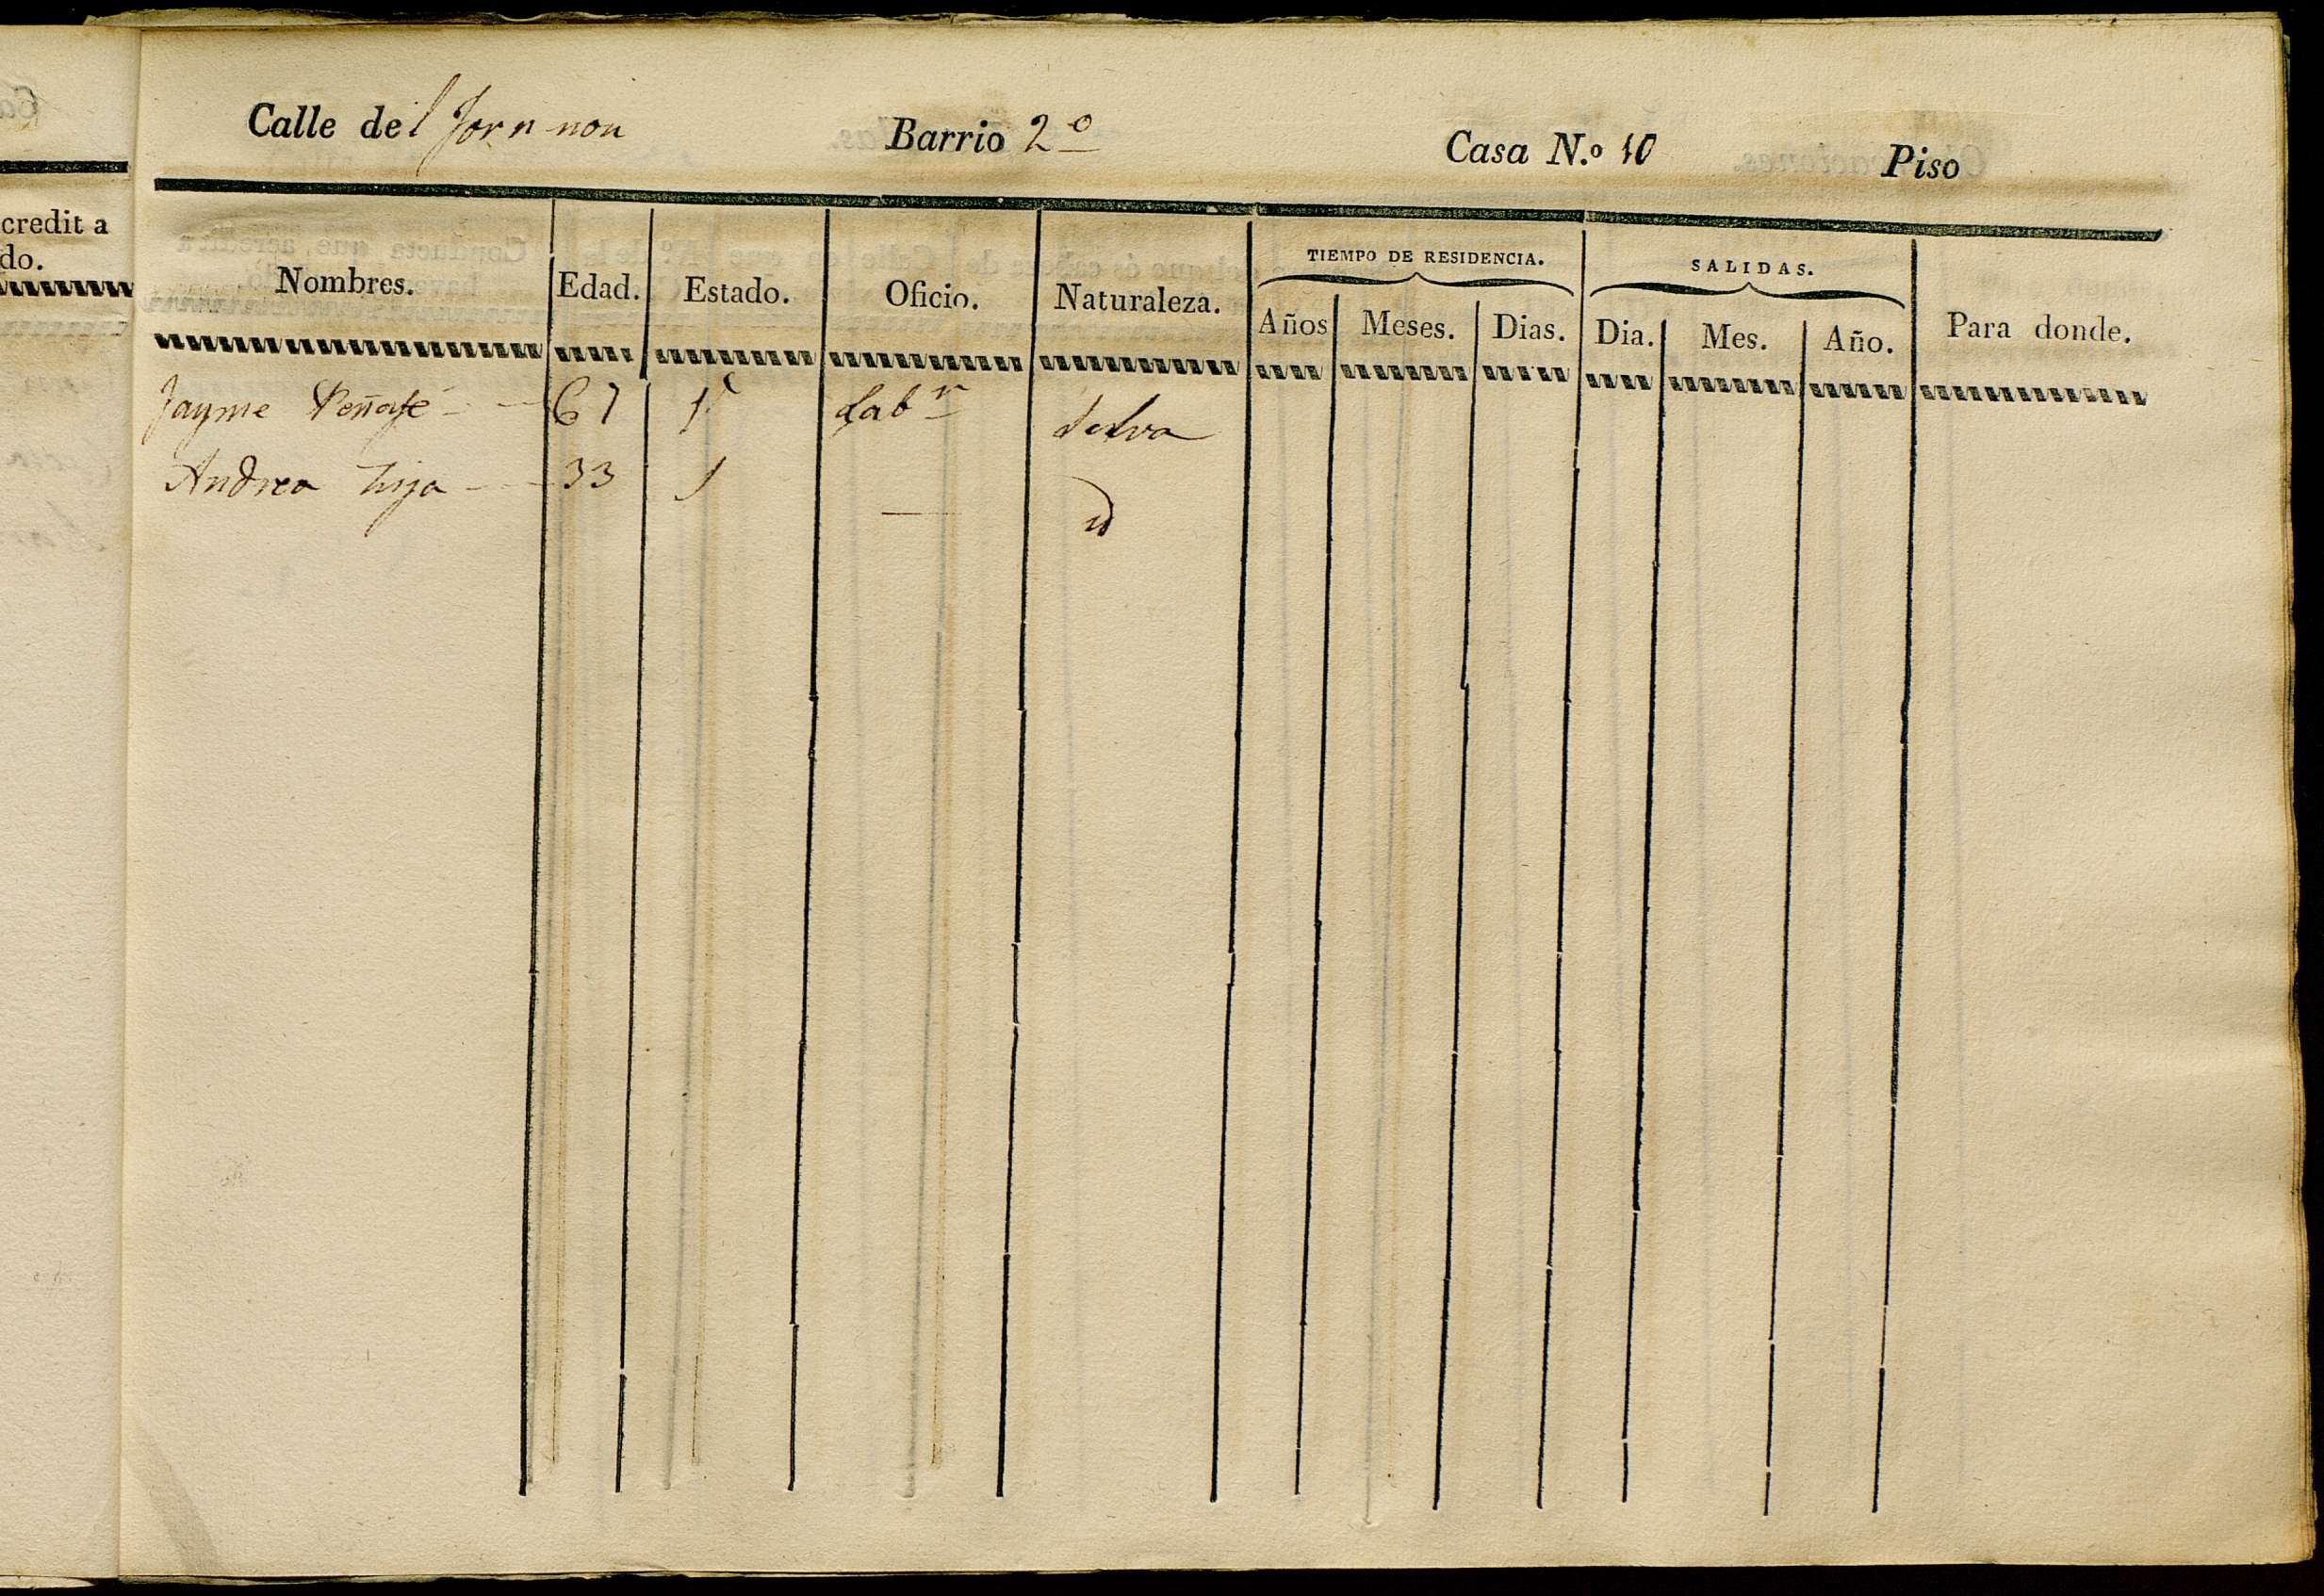 credit a
do.
Calle del Forn nou Barrio 2º Casa N.º 10 Piso
TIEMPO DE RESIDENCIA. SALIDAS.
Nombres. Edad. Estado. Oficio. Naturaleza. Años Meses. Dias. Dia. Mes. Año. Para donde.
Jayme 67 Labr Selva
Andrea hija 33 id